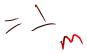 = 1/m